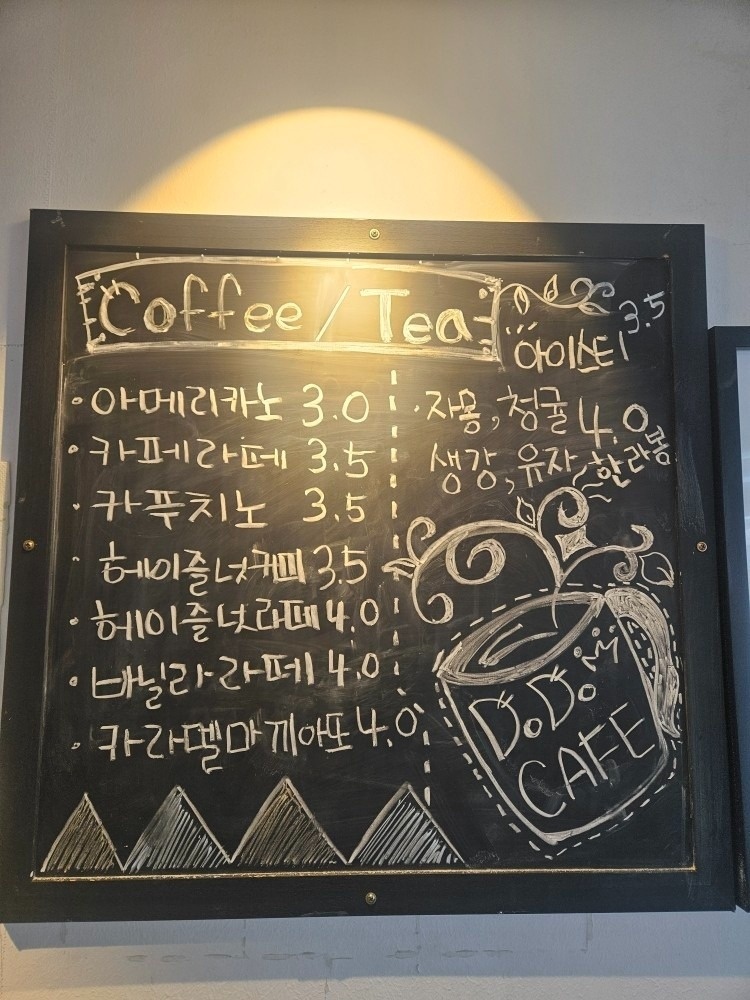 Coffee / Tea
· 아메리카노 3.0
· 카페라떼 3.5
· 카푸치노 3.5
· 헤이즐넛커피 3.5
· 헤이즐넛라떼 4.0
· 바닐라라떼 4.0
· 카라멜마끼아또 4.0
아이스티 3.5
· 자몽, 청귤 4.0
생강, 유자, 한라봉
DoDo
CAFE